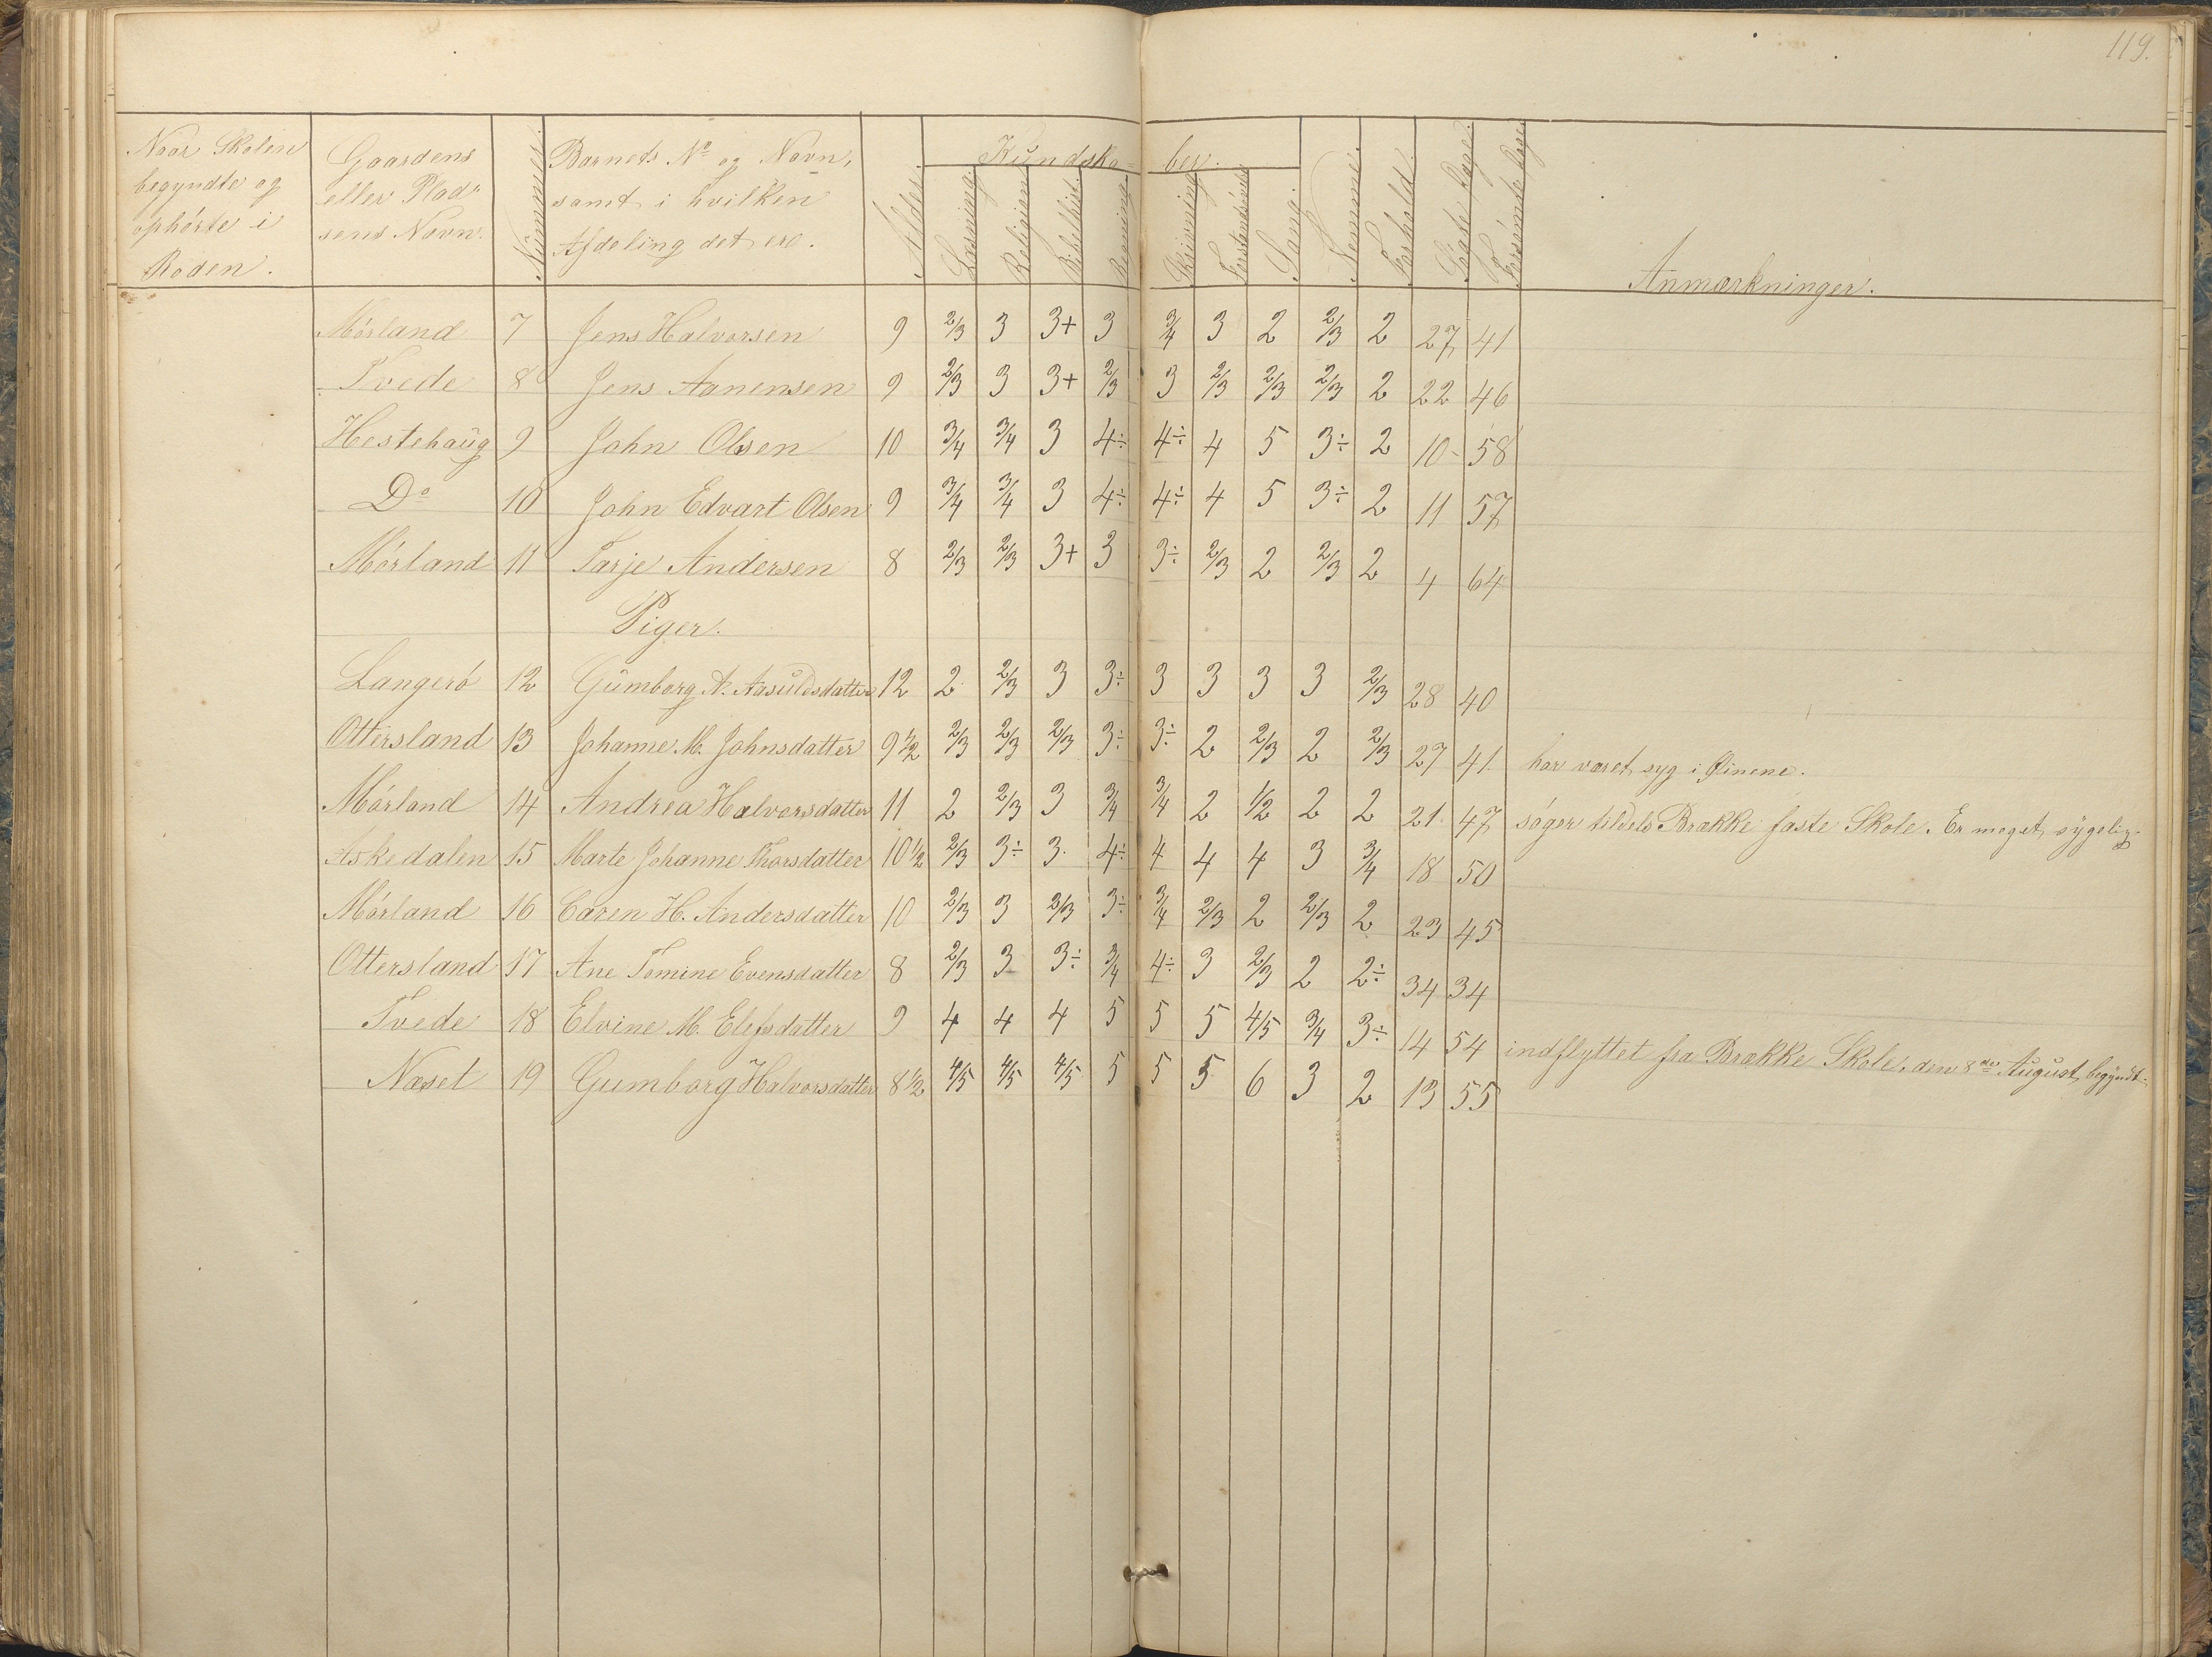 119.
Naar Skolen begyndte og ophørte i Roden. | Gaardens eller Pladsens Navn. | Nummer. | Barnets No og Navn, samt i hvilken Afdeling det er. | Alder. | Kundskaber. | Læsning. | Religion. | Bibelhist. | Regning. | Skrivning. | Forstandsøvelse | Sang. | Nemme. | Forhold. | Søgte Dage. | Forsømte Dage. | Anmærkninger.
Mørland 7 Jens Halvorsen 9 2/3 3 3+ 3 3/4 3 2 2/3 2 27 41
Tvede 8 Jens Aanensen 9 2/3 3 3+ 2/3 3 2/3 2/3 2/3 2 22 46
Hestehaug 9 John Olsen 10 3/4 3/4 3 4÷ 4÷ 4 5 3÷ 2 10 58
Do 10 John Edvart Olsen 9 3/4 3/4 3 4÷ 4÷ 4 5 3÷ 2 11 57
Mørland 11 Tarje Andersen 8 2/3 2/3 3+ 3 3÷ 2/3 2 2/3 2 4 64
Piger.
Langerø 12 Gumborg A. Aasuldsdatter 12 2 2/3 3 3÷ 3 3 3 3 2/3 28 40
Ottersland 13 Johanne M. Johnsdatter 9 1/2 2/3 2/3 2/3 3÷ 3÷ 2 2/3 2 2/3 27 41 har været syg i Øinene.
Mørland 14 Andrea Halvorsdatter 11 2 2/3 3 3/4 3/4 2 1/2 2 2 21 47 søger tildels Brække faste Skole. Er meget sygelig.
Askedalen 15 Marte Johanne Thorsdatter 10 1/2 2/3 3÷ 3 4÷ 4 4 4 3 3/4 18 50
Mørland 16 Caren H. Andersdatter 10 2/3 3 2/3 3÷ 3/4 2/3 2 2/3 2 23 45
Ottersland 17 Ane Tomine Evensdatter 8 2/3 3 3÷ 3/4 4÷ 3 2/3 2 2÷ 34 34
Tvede 18 Elvine M. Elefsdatter 9 4 4 4 5 5 5 4/5 3/4 3÷ 14 54
Næset 19 Gumborg Halvorsdatter 8 1/2 4/5 4/5 4/5 5 5 5 6 3 2 13 55 indflyttet fra Brække Skole, den 8de August begyndt.